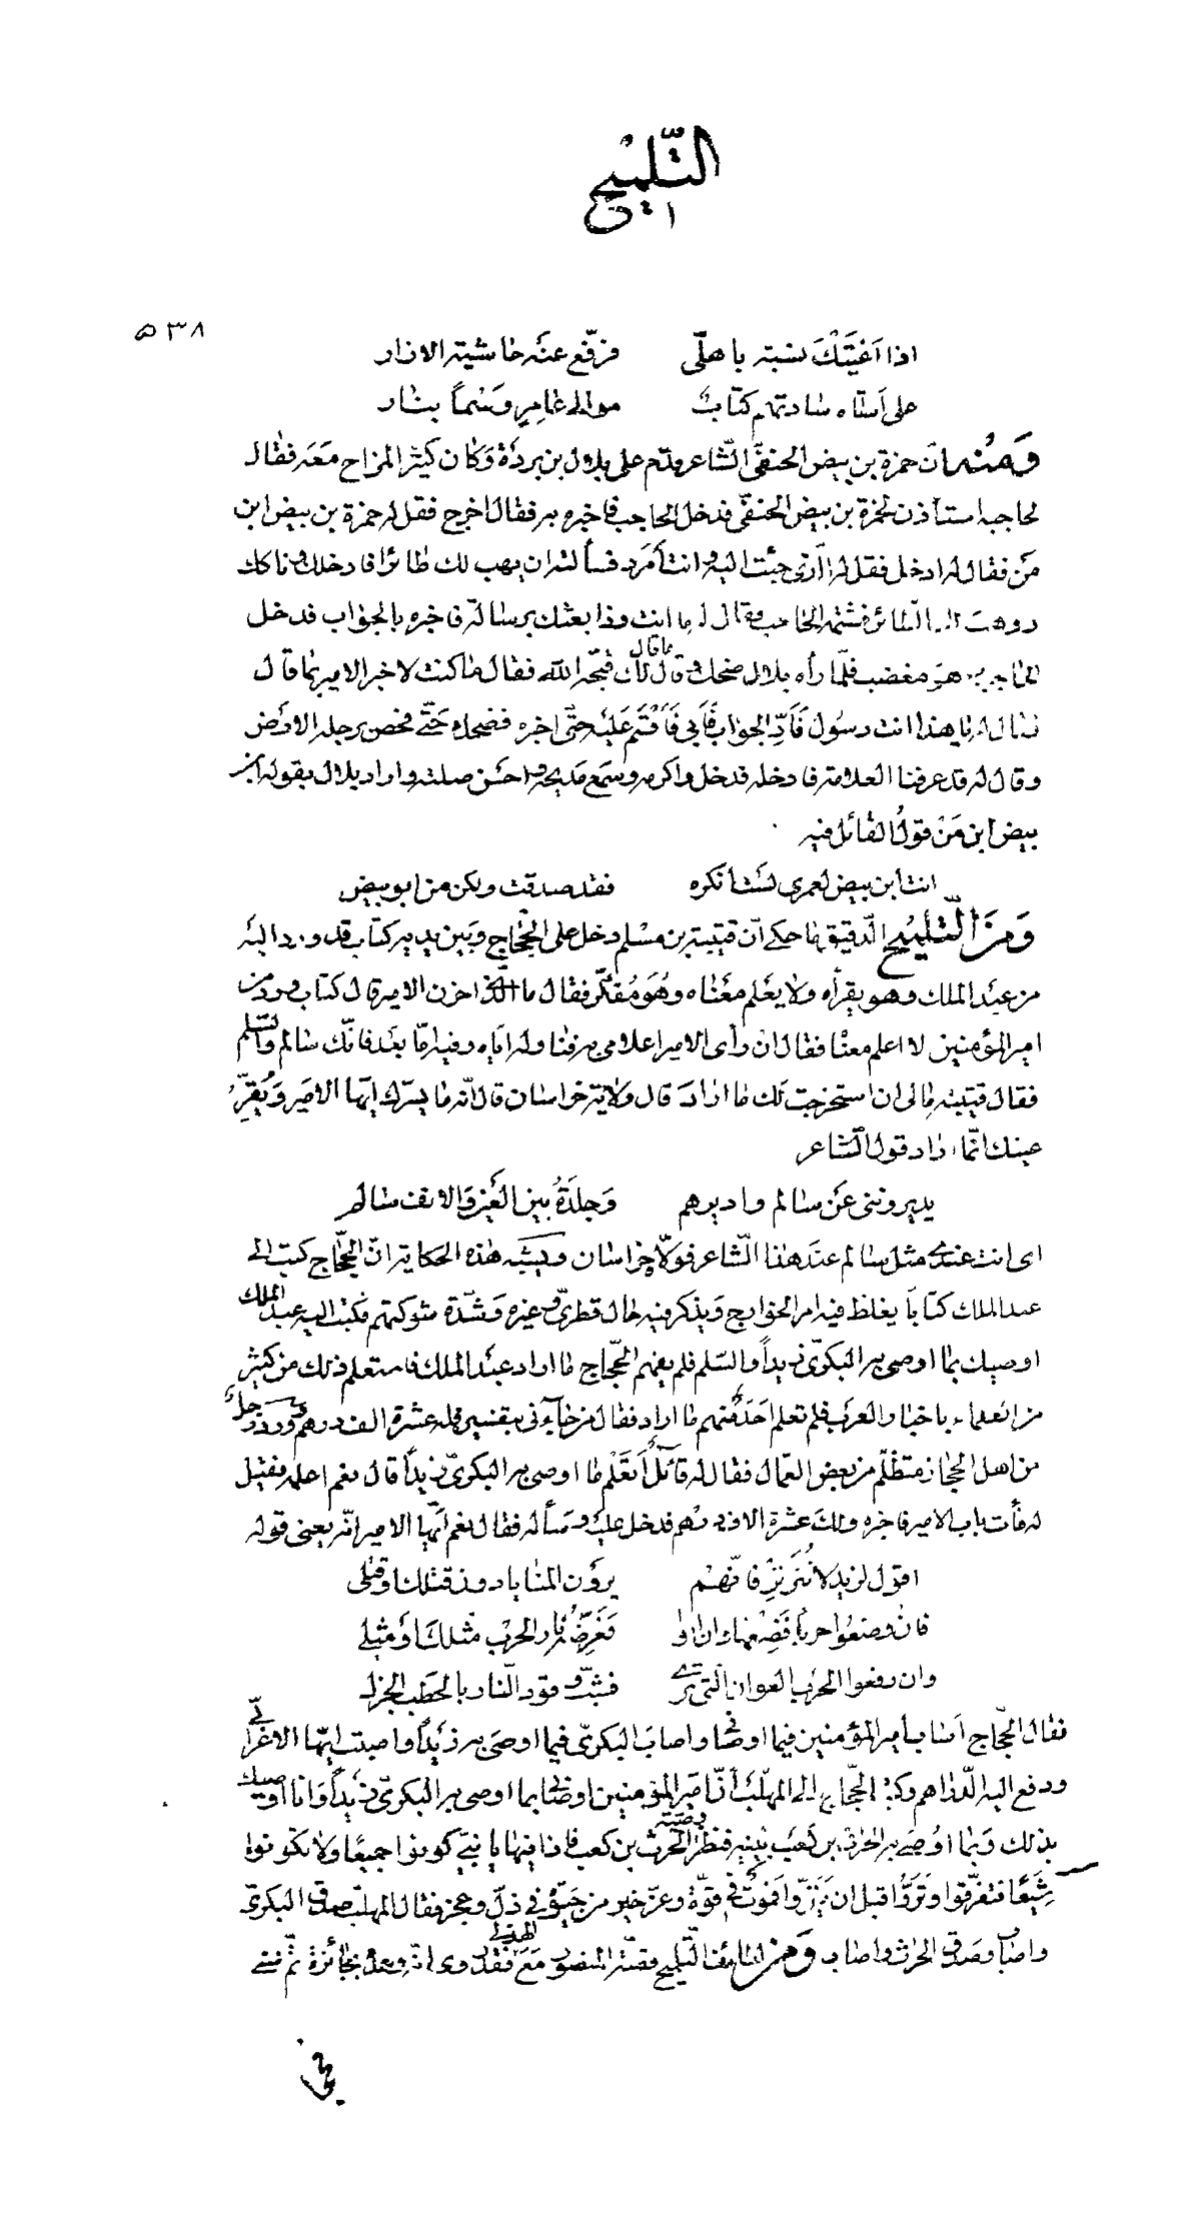 التلميح
٥٣٨
اذا اعيتك نسبة باهلى فرفع عنه حاشية الازار
على استاه سادتهم كتاب موالى عامر وسما بنار
ومنه ان حمزة بن بيض الحنفى الشاعر قدم على بلال بن بردة وكان كثير المزاح معه فقال
لحاجبه استأذن لحمزة بن بيض الحنفى فدخل الحاجب فاخبره به فقال اخرج فقل له حمزة بن بيض ابن
من فقال له ادخل فقل له الذى جئت اليه وانت امرد فسألته ان يهب لك طائرا فادخلك وناكك
ووهب لك الطائر فشتمه الحاجب فقال له ما انت وذا بعثك برسالة فاخبره بالجواب فدخل
الحاجب وهو مغضب فلما رآه بلال ضحك وقال ما قال لك قبحه الله فقال ما كنت لاخبر الامير بما قال
فقال له يا هذا انت رسول فاد الجواب فابى فاقسم عليه حتى اخبره فضحك حتى فحص برجله الارض
وقال له قد عرفنا العلامة فادخله فدخل واكرمه وسمع مديحه واحسن صلته واراد بلال بقوله ابن
بيض ابن من قول القائل فيه
انت ابن بيض لعمرى لست انكره فقد صدقت ولكن من ابو بيض
ومن التلميح الدقيق ما حكى ان قتيبة بن مسلم دخل على الحجاج وبين يديه كتاب قد ورد اليه
من عبد الملك وهو يقرأه ولا يعلم معناه وهو مفكر فقال ما الذى احزن الامير قال كتاب ورد من
امير المؤمنين لا اعلم معناه فقال ان رأى الامير اعلامى به فناوله اياه وفيه اما بعد فانك سالم والسلم
فقال قتيبة مالى ان استخرجت لك ما اراد قال ولاية خراسان قال انه ما يسرك ايها الامير ويقر
عينك انما اراد قول الشاعر
يديروننى عن سالم واديرهم وجلدة بين العين والانف سالم
اى انت عندى مثل سالم عند هذا الشاعر فولاه خراسان ويشبه هذه الحكاية ان الحجاج كتب الى
عبد الملك كتابا يغلظ فيه امر الخوارج ويذكر فيه حال قطرى وغيره وشدة شوكتهم فكتب اليه عبد الملك
اوصيك بما اوصى به البكرى زيدا والسلم فلم يفهم الحجاج ما اراد عبد الملك فاستعلم ذلك من كثير
من العلماء باخبار العرب فلم تعلم احد منهم ما اراد فقال من جاءنى بتفسيره فله عشرة الف درهم وورد رجل
من اهل الحجاز متظلم من بعض العمال فقال له قائل اتعلم ما اوصى به البكرى زيدا قال نعم اعلمه فقيل
له فأت باب الامير فاخبره ولك عشرة الاف درهم فدخل عليه وسأله فقال نعم ايها الامير انه يعنى قوله
اقول لزيد لا تترتر فانهم يرون المنايا دون قتلك او قتلى
فان وضعوا حربا فضعها وان ابوا فعرضة نار الحرب مثلك او مثلى
وان رفعوا الحرب العوان التى ترى فشب وقود النار بالحطب الجزل
فقال الحجاج اصاب امير المؤمنين فيما اوصانى واصاب البكرى فيما اوصى به زيدا واصبت ايها الاعرابى
ودفع اليه الدراهم وكتب الحجاج الى المهلب ان امير المؤمنين اوصانى بما اوصى به البكرى زيدا وانا اوصيك
بذلك وبما اوصى به الحرث بن كعب بنيه فنظر وصية الحرث بن كعب فاذا فيها يا بنى كونوا جميعا ولا تكونوا
شيعا فتفرقوا وتزوا قبل ان تبزوا فموت فى قوة وعز خير من حيوة فى ذل وعجز فقال المهلب صدق البكرى
واصاب وصدق الحرث واصاب ومن لطائف التلميح قصة المنصور مع الهذلى فقد روى انه وعده بجائزة ثم نسى